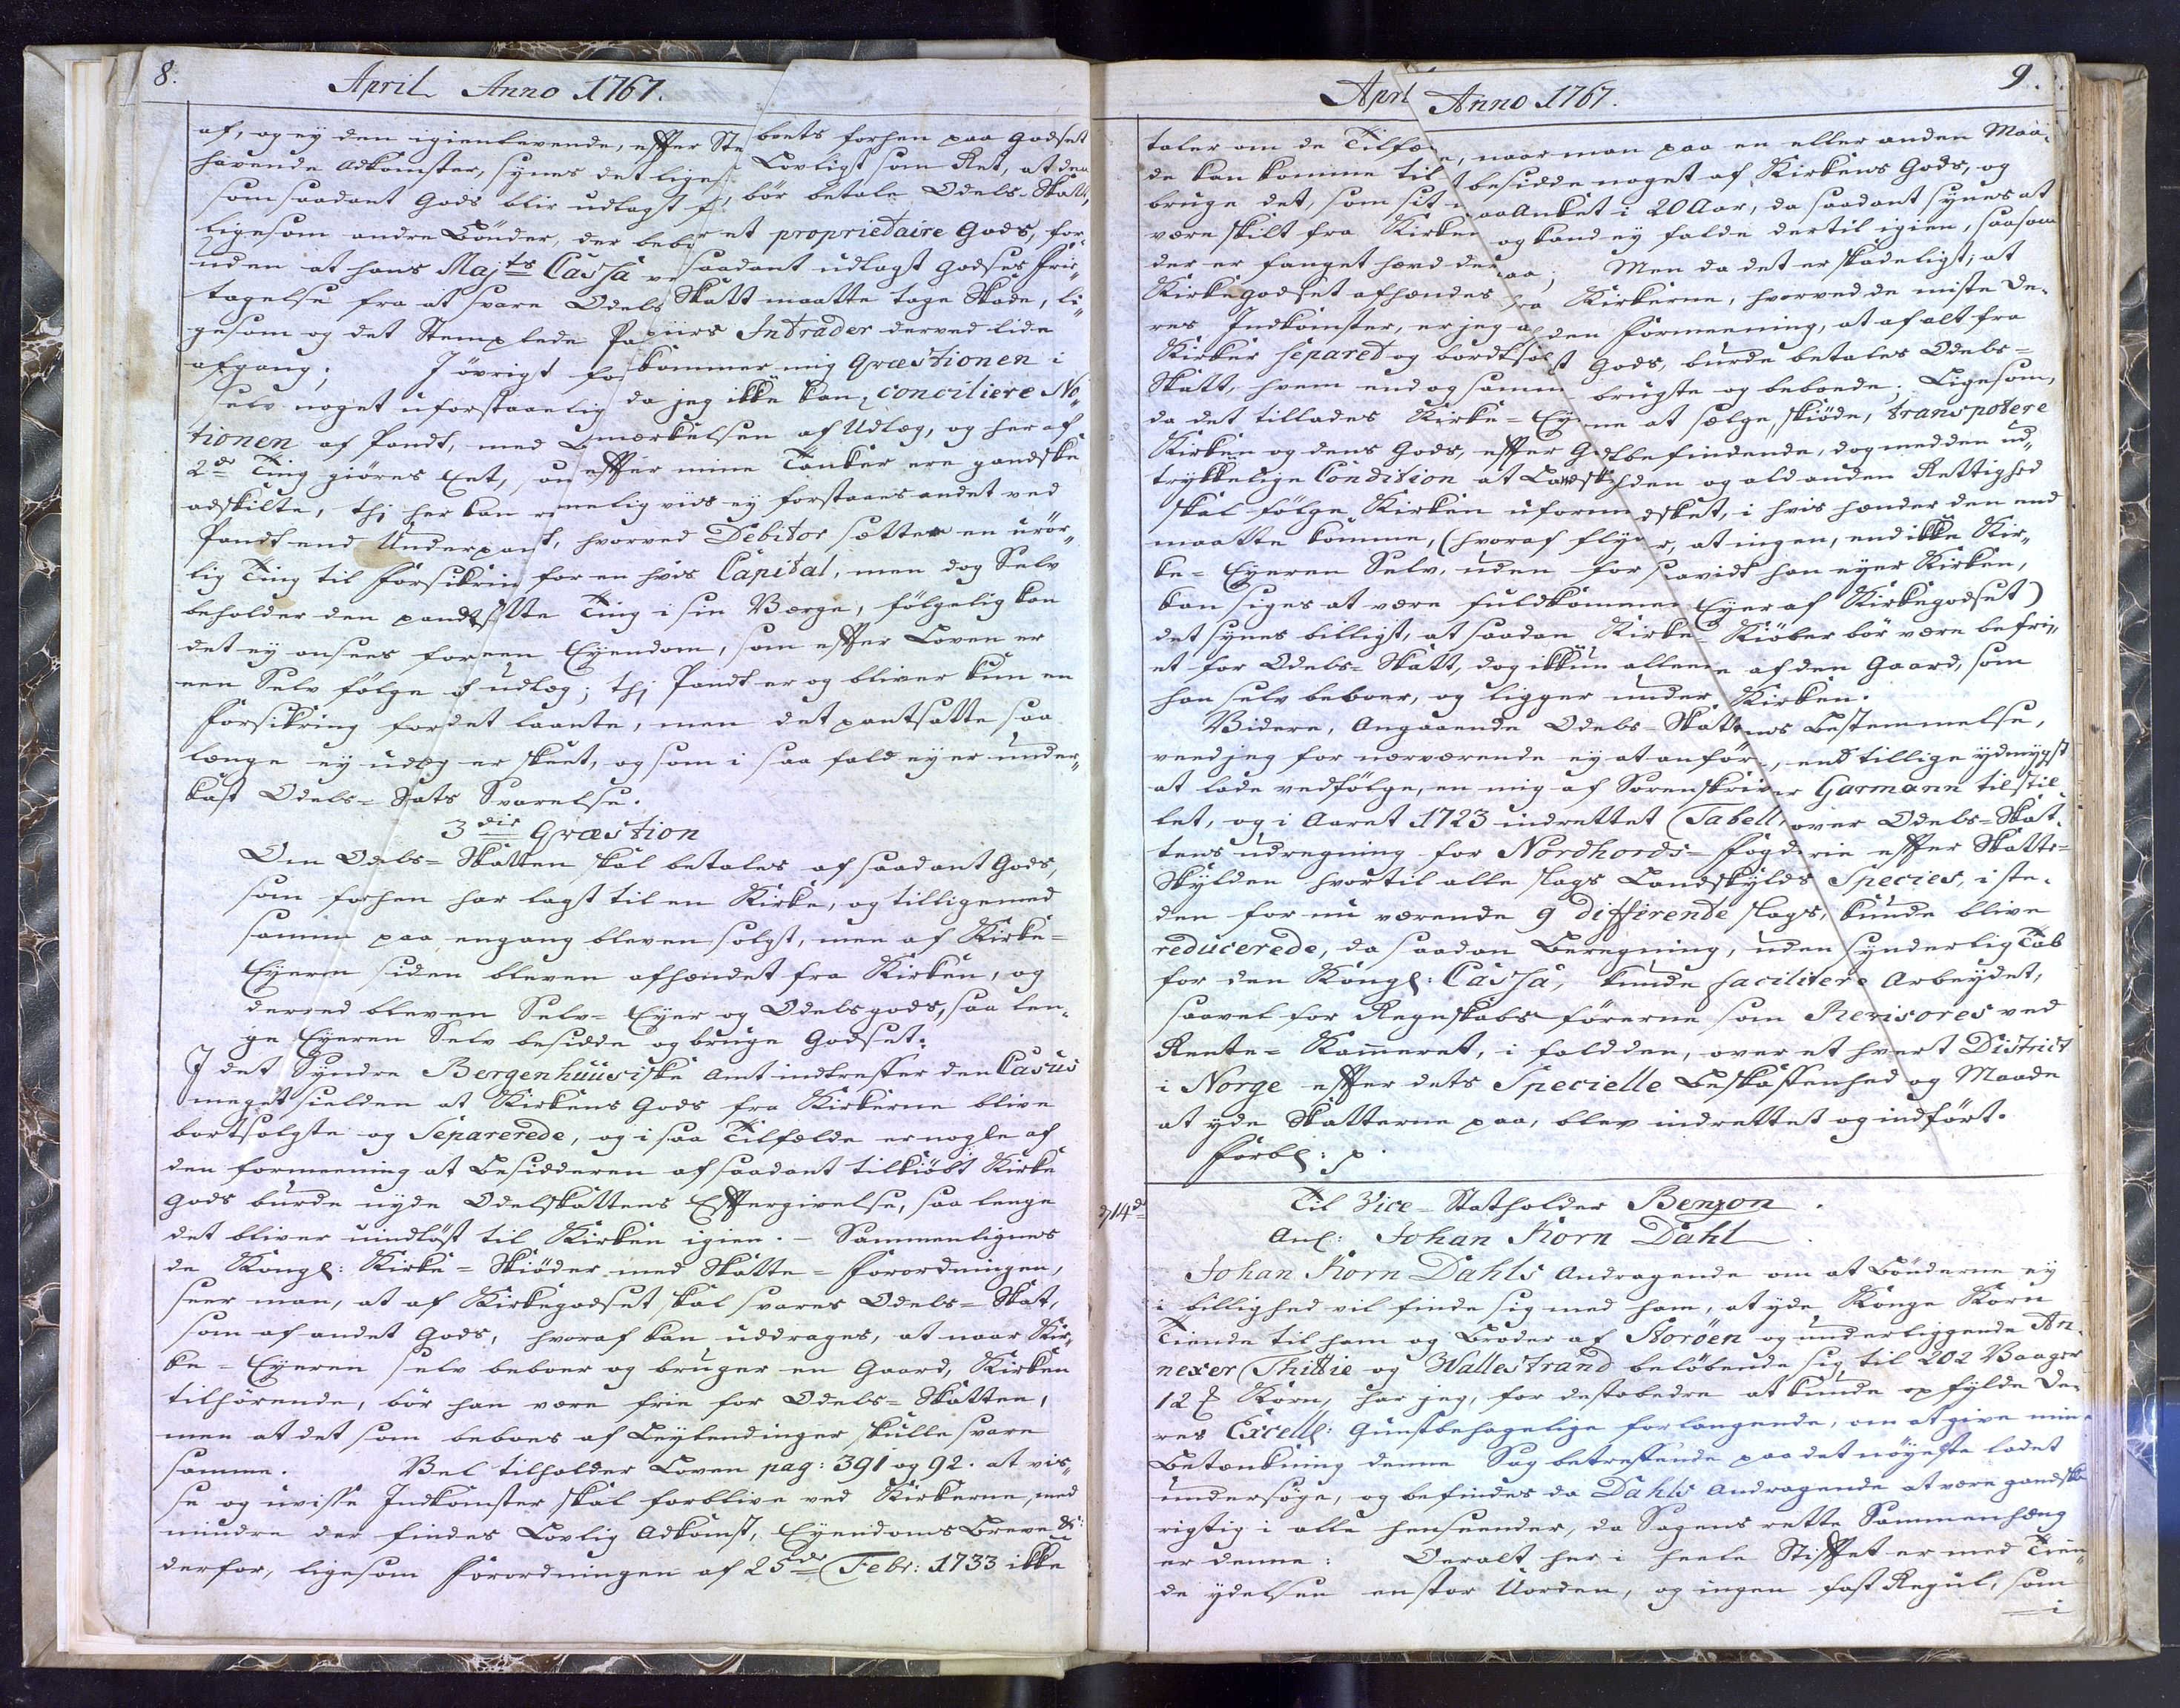 8.
April Anno 1767.
af, og ey den igienlevende, efter Ste boets forhen paa Godset
havende Adkomster, synes det lige Lovligt som Ret, at den
som saadant Gods blir udlagt f bör betale Odels-Skatt,
ligesom andre Bönder, der bebo et proprietaire Gods, for„
uden at hans Majts Cassa v saadant udlagt Godses frie„
tagelse fra at svare Odels Skatt maatte tage Skade, li„
gesom og det Stemplede Papiirs Intrader derved lide
afgang; J övrigt fo kommer mig Qvæstionen i
selv noget uforstaaelig da jeg ikke kan conciliere No„
tionen af Pandt, med Bemærkelsen af Udlæg, og her af
2de Ting giöres Eet, som efter mine Tanker ere gandske
adskilte, thi her kan rimelig viis ey forstaaes andet ved
Pandt end Underpant, hvorved Debitor sætter en urör„
lig Ting til forsikring for en hvis Capital, men dog Selv
beholder den pandtsatte Ting i sin Værge, fölgelig kan
det ey ansees for een Eyendom, som efter Loven er
een Selv fölge af udlæg; thi Pandt er og bliver kun en
forsikring for det laante, men det pantsatte saa
længe ey udlæg er skeet, og som i saa fald ey er under„
kast Odels-Skats Svarelse.
3die Qvæstion
Om Odels-Skatten skal betales af saadant Gods,
som forhen har lagt til en Kirke, og tilligemed
samme paa engang bleven solgt, men af Kirke-
Eyeren siden bleven afhændet fra Kirken, og
derved bleven Selv-Eyer og Odelsgods, saa len„
ge Eyeren Selv besidde og bruge Godset.
I det Syndre Bergenhuusiske Amt indtreffer den Casus
meget sielden at Kirkens Gods fra Kirkerne blive
bortsolgte og Separerede, og i saa Tilfælde er nogle af
den formeening at Besidderen af saadant tilkiöbt Kirke
Gods burde nyde Odelskattens Eftergivelse, saa lenge
det bliver uindlöst til Kirken igien. - Sammenlignes
de Kongl: Kirke-Skiöder med Skatte-forordningen,
seer man, at af Kirkegodset skal svares Odels-Skat,
som af andet Gods, hvoraf kan uddrages, at naar Kir„
ke-Eyeren selv beboer og bruger en Gaard, Kirken
tilhörende, bör han være frie for Odels-Skatten,
men at det som beboes af Leylendinger skulle svare
samme. Vel tilholder Loven pag: 391 og 92. at vis„
se og uvisse Indkomster skal forblive ved Kirkerne, med
mindre der findes Lovlig Adkomst, Eyendoms Breve &c:
derfor, ligesom forordningen af 25de Febr: 1733 ikke
9.
Aprl Anno 1767.
taler om de Tilfælde, naar man paa en eller anden Maa„
de kan komme til t besidde noget af Kirkens Gods, og
bruge det, som sit u aaanket i 20 Aar, da saadant synes at
være skilt fra Kirken og kand ey falde dertil igien, saasom
der er fanget hævd der paa; Men da det er skadeligt, at
Kirkegodset afhændes fra Kirkerne, hvorved de miste De„
res Indkomster, er jeg af den formeening, at af alt fra
Kirker separet og bordtsolgt Gods, burde betales Odels-
Skatt, hvem end og samme brugte og beboede. Ligesom,
da det tillades Kirke-Eyerne at sælge, skiöde, transpotere
Kirken og dens Gods, efter Godtbefindende, dog med den ud„
trykkelige Condition at Landskylden og ald anden Rettighed
skal fölge Kirken uformindsket, i hvis hænder den end
maatte komme, (hvoraf flyder, at ingen, end ikke Kir„
ke-Eyeren Selv, uden for saavidt han eyer Kirken,
kan siges at være fuldkommen Eyer af Kirkegodset)
det synes billigt, at saadan Kirke-Kiöber bör være befri„
et for Odels-Skatt, dog ikkun alleene af den Gaard, som
han selv beboer, og ligger under Kirken.
Videre, Angaaende Odels-Skattens Bestemmelse,
veed jeg for nærværende ey at anföre, end tillige ydmygst
at lade vedfölge, en mig af Sorenskriver Garmann tilstil„
let, og i Aaret 1723 indrettet Tabell, over Odels-Skat„
tens udregning for Nordhords-fogderie efter Skatte-
Skylden hvortil alle slags Landskylds Species, i ste„
den for nu værende 9 differende slags, kunde blive
reducerede, da saadan Beregning, uden synderlig Tab
for den Kongl: Cassa, kunde facilitere Arbeydet,
saavel for Regnskabs förerne som Revisores ved
Rente-Kammeret, i fald den, over et hvert District
i Norge efter dets Specielle Beskaffenhed og Maade
at yde Skatterne paa, blev indrettet og indfört.
forbl: p.
d 14de
Til Vice-Statholder Benzon.
Anl: Johan Korn Dahl.
Johan Korn Dahls Andragende om at Bönderne ey
i billighed vil finde sig med ham, at yde Konge Korn
Tiende til ham og Broder af Storöen og underliggende An„
nexer Thittie og Wallestrand beløbende sig til 202 Vaager
12 Korn, har jeg, for desto bedre at kunde opfylde De„
res Excell: Gunstbehagelige forlangende, om at give min
Betænkning denne Sag betreffende paa det nöyeste ladet
undersöge, og befindes da Dahls Andragende at være gandske
rigtig i alle henseender, da Sagens rette Sammenhæng
er denne: Overalt her i heele Stiftet er med Tien„
de ydelsen en stor Uorden, og ingen fast Regul, som
i